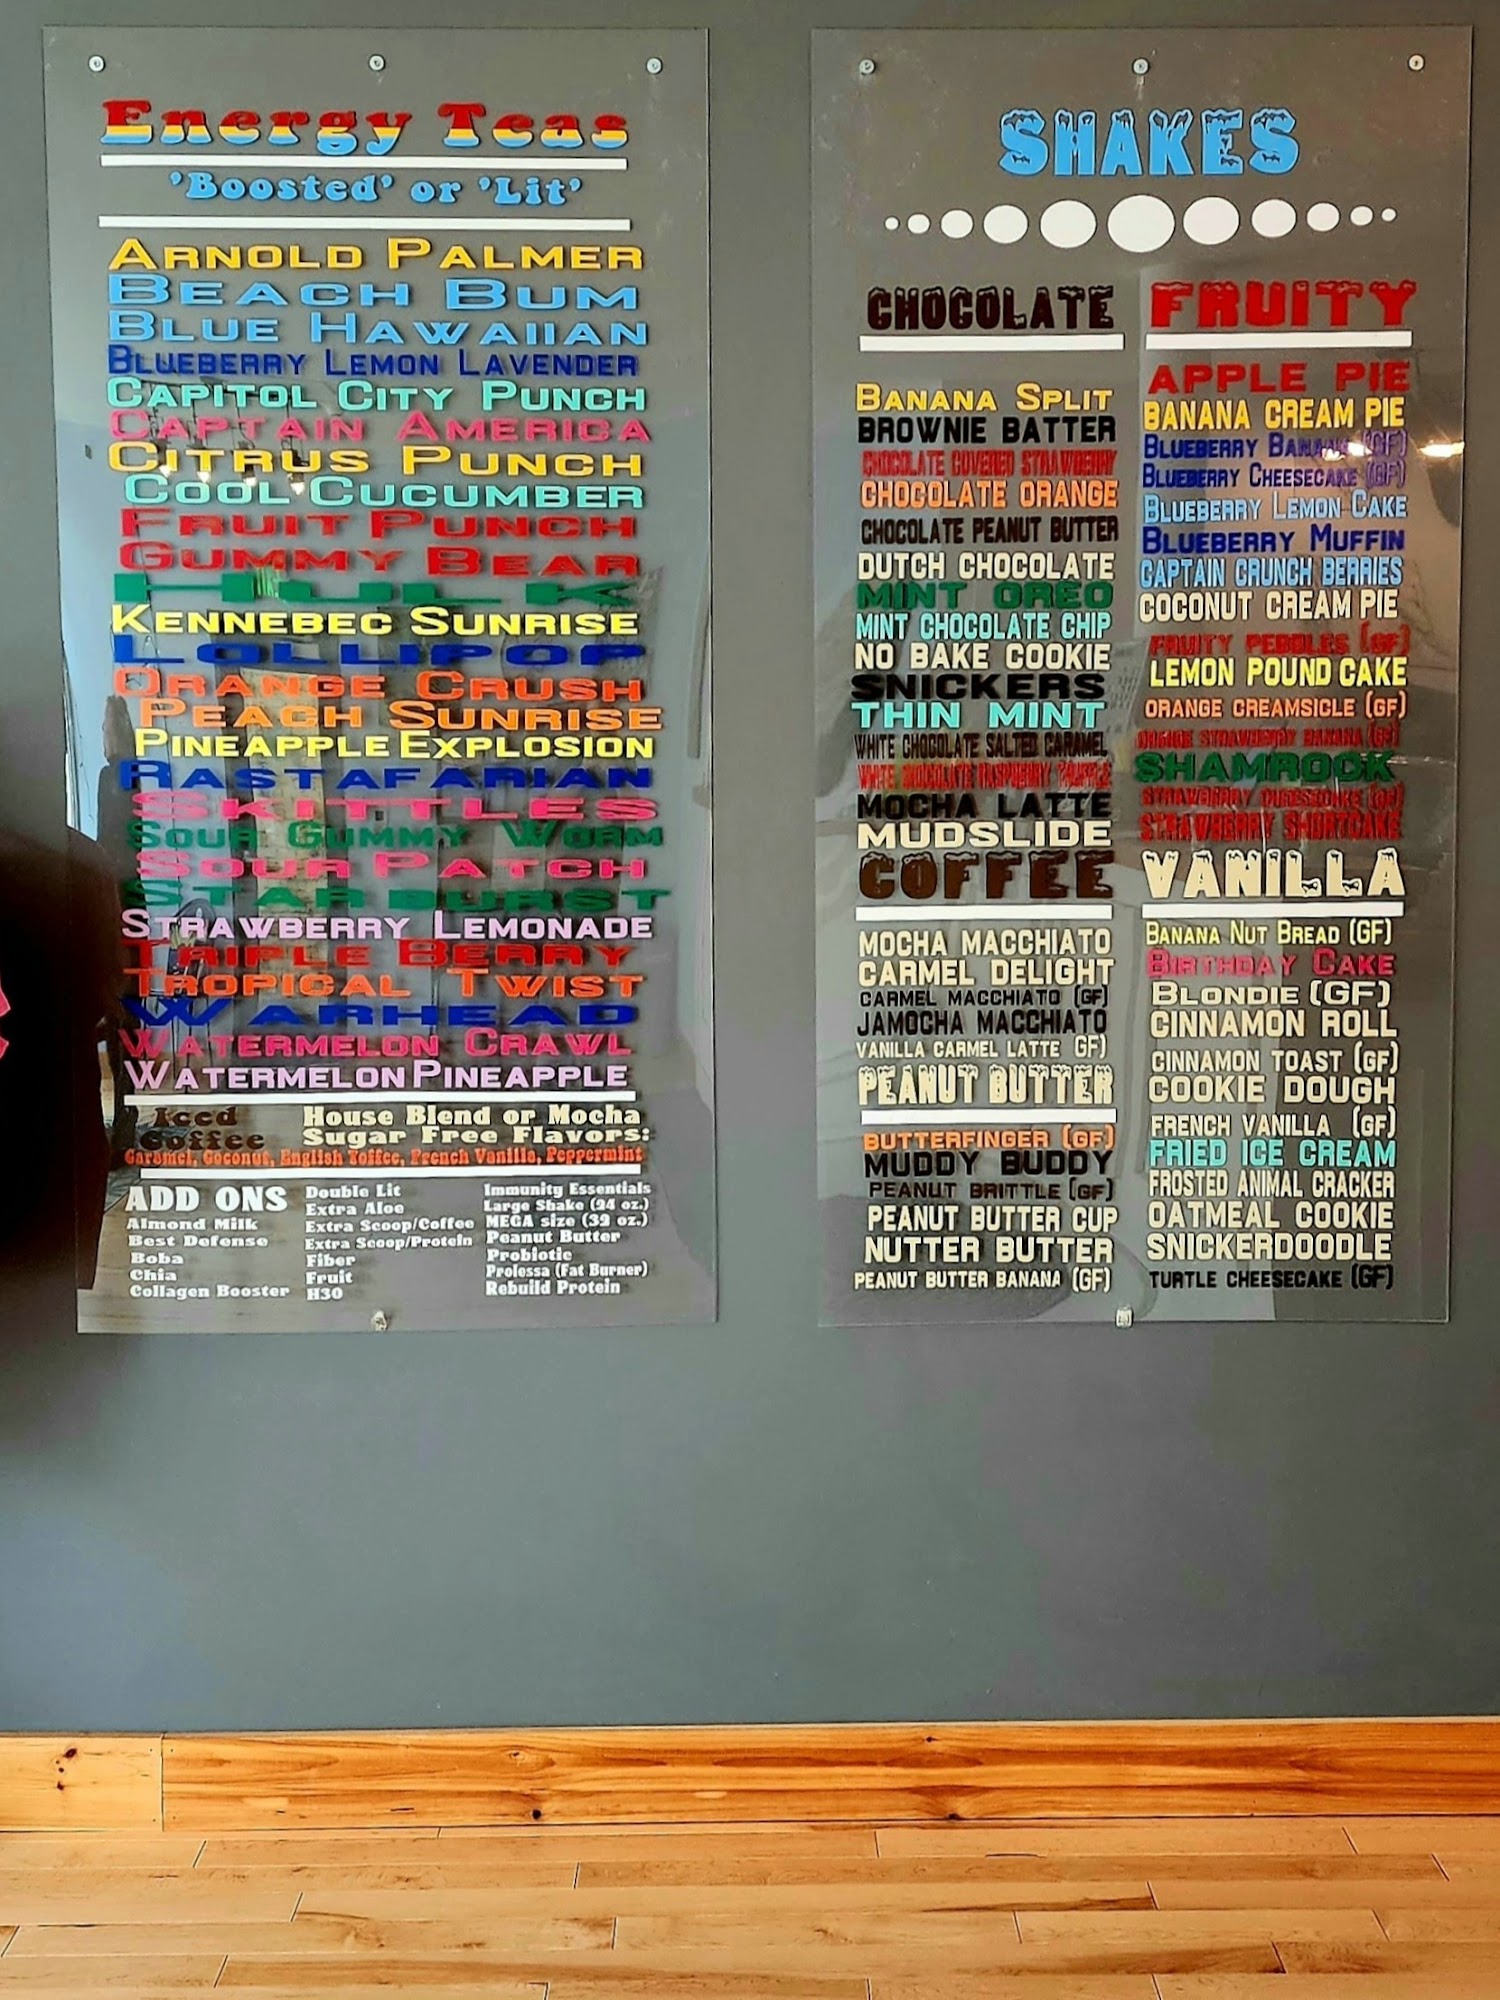 Energy Teas
'Boosted' or 'Lit'
ARNOLD PALMER
BEACH BUM
BLUE HAWAIIAN
BLUEBERRY LEMON LAVENDER
CAPITOL CITY PUNCH
CAPTAIN AMERICA
CITRUS PUNCH
COOL CUCUMBER
FRUIT PUNCH
GUMMY BEAR
HULK
KENNEBEC SUNRISE
LOLLIPOP
ORANGE CRUSH
PEACH SUNRISE
PINEAPPLE EXPLOSION
RASTAFARIAN
SKITTLES
SOUR GUMMY WORM
SOUR PATCH
STARBURST
STRAWBERRY LEMONADE
TRIPLE BERRY
TROPICAL TWIST
WARHEAD
WATERMELON CRAWL
WATERMELON PINEAPPLE
Iced
Coffee
House Blend or Mocha
Sugar Free Flavors:
Caramel, Coconut, English Toffee, French Vanilla, Peppermint
ADD ONS
Almond Milk
Best Defense
Boba
Chia
Collagen Booster
Double Lit
Extra Aloe
Extra Scoop/Coffee
Extra Scoop/Protein
Fiber
Fruit
H30
Immunity Essentials
Large Shake (24 oz.)
MEGA size (32 oz.)
Peanut Butter
Probiotic
Prolessa (Fat Burner)
Rebuild Protein
SHAKES
CHOCOLATE
BANANA SPLIT
BROWNIE BATTER
CHOCOLATE COVERED STRAWBERRY
CHOCOLATE ORANGE
CHOCOLATE PEANUT BUTTER
DUTCH CHOCOLATE
MINT OREO
MINT CHOCOLATE CHIP
NO BAKE COOKIE
SNICKERS
THIN MINT
WHITE CHOCOLATE SALTED CARAMEL
WHITE CHOCOLATE RASPBERRY TRUFFLE
MOCHA LATTE
MUDSLIDE
COFFEE
MOCHA MACCHIATO
CARMEL DELIGHT
CARMEL MACCHIATO (GF)
JAMOCHA MACCHIATO
VANILLA CARMEL LATTE GF)
PEANUT BUTTER
BUTTERFINGER (GF)
MUDDY BUDDY
PEANUT BRITTLE (GF)
PEANUT BUTTER CUP
NUTTER BUTTER
PEANUT BUTTER BANANA (GF)
FRUITY
APPLE PIE
BANANA CREAM PIE
BLUEBERRY BANANA (GF)
BLUEBERRY CHEESECAKE (GF)
BLUEBERRY LEMON CAKE
BLUEBERRY MUFFIN
CAPTAIN CRUNCH BERRIES
COCONUT CREAM PIE
FRUITY PEBBLES (GF)
LEMON POUND CAKE
ORANGE CREAMSICLE (GF)
STRAWBERRY BANANA (GF)
SHAMROCK
STRAWBERRY CHEESECAKE (GF)
STRAWBERRY SHORTCAKE
VANILLA
BANANA NUT BREAD (GF)
BIRTHDAY CAKE
BLONDIE (GF)
CINNAMON ROLL
CINNAMON TOAST (GF)
COOKIE DOUGH
FRENCH VANILLA (GF)
FRIED ICE CREAM
FROSTED ANIMAL CRACKER
OATMEAL COOKIE
SNICKERDOODLE
TURTLE CHEESECAKE (GF)